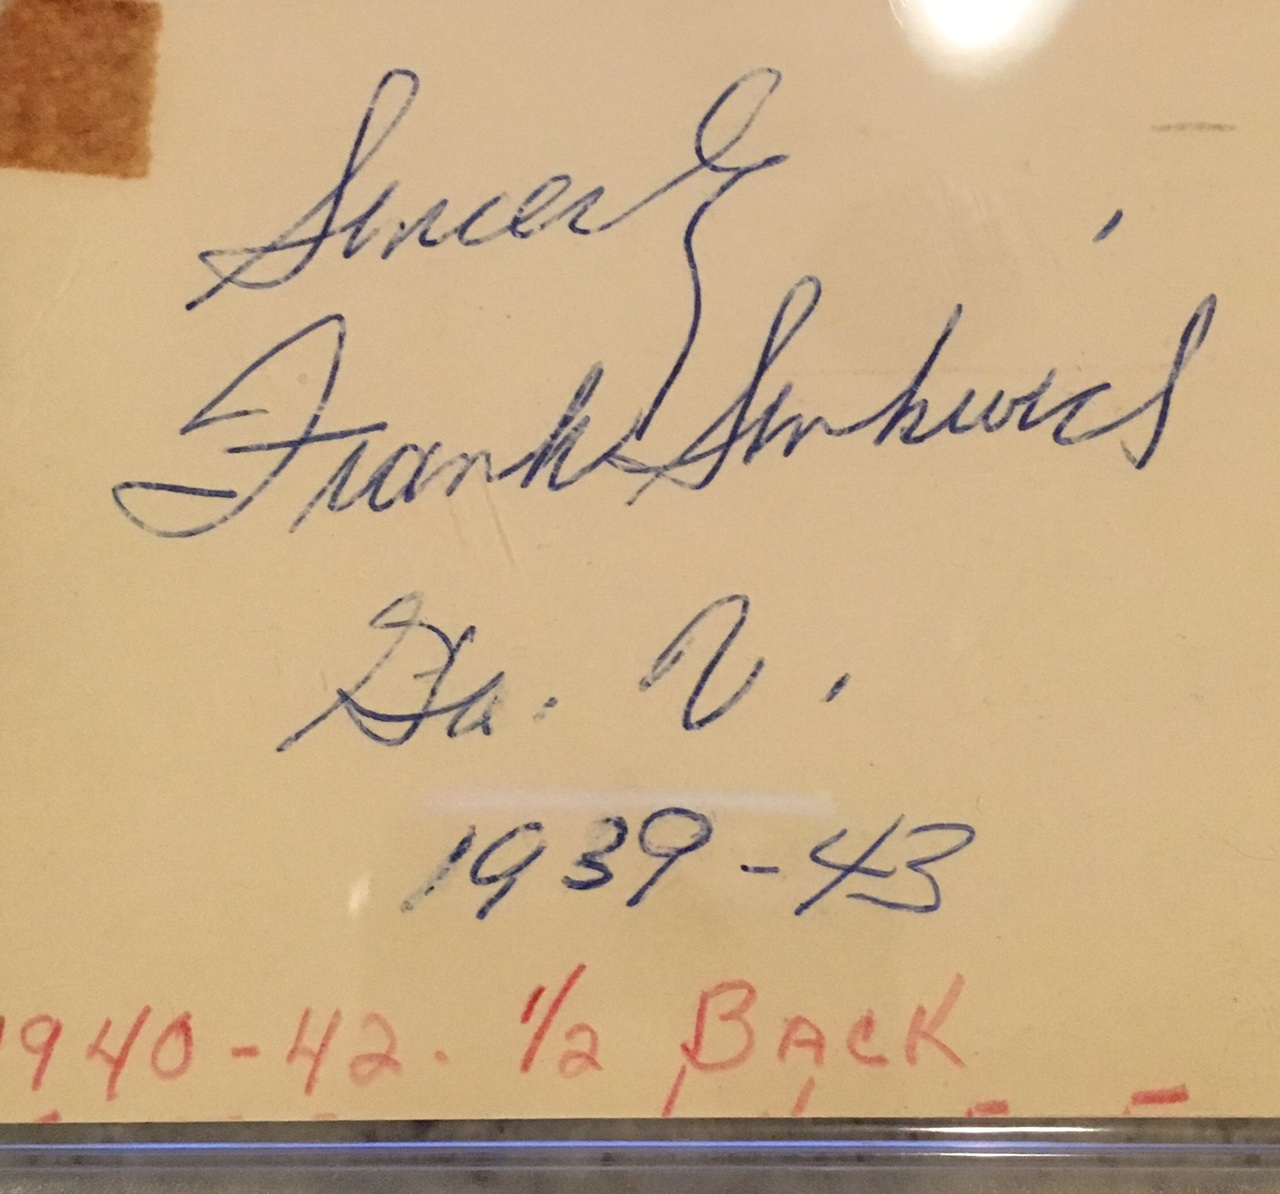 Sincerely
Frank Sinkwich
Ga. U.
1939-43
1940-42. 1/2 BACK